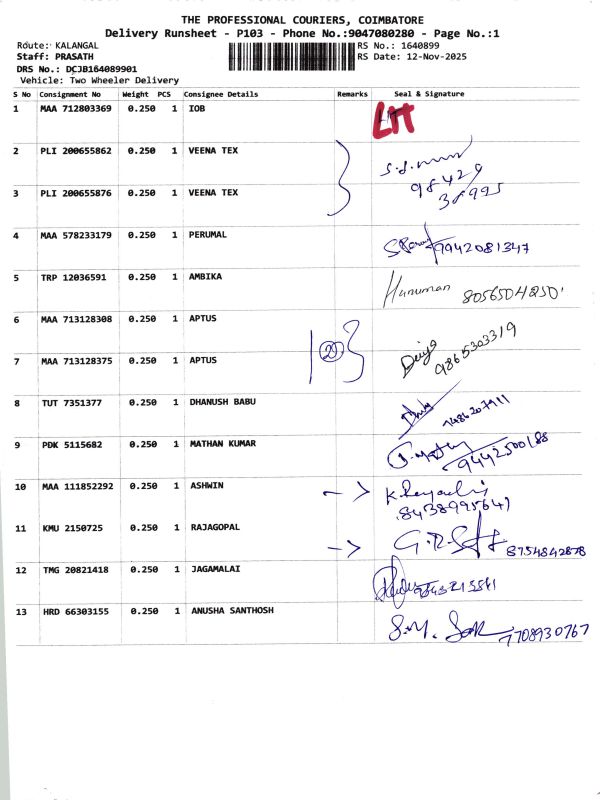 THE PROFESSIONAL COURIERS, COIMBATORE
Delivery Runsheet - P103 - Phone No.:9047080280 - Page No.:1
Route: KALANGAL RS No.: 1640899
Staff: PRASATH RS Date: 12-Nov-2025
DRS No.: DCJB164089901
Vehicle: Two Wheeler Delivery
S No Consignment No Weight PCS Consignee Details Remarks Seal & Signature
1 MAA 712803369 0.250 1 IOB
2 PLI 200655862 0.250 1 VEENA TEX
98429
3 PLI 200655876 0.250 1 VEENA TEX
38995
4 MAA 578233179 0.250 1 PERUMAL 9942081347
5 TRP 12036591 0.250 1 AMBIKA Hanuman 8056504250
6 MAA 713128308 0.250 1 APTUS
7 MAA 713128375 0.250 1 APTUS 9865303319
8 TUT 7351377 0.250 1 DHANUSH BABU
9 PDK 5115682 0.250 1 MATHAN KUMAR 9442500188
10 MAA 111852292 0.250 1 ASHWIN
8438995641
11 KMU 2150725 0.250 1 RAJAGOPAL 8754842878
12 TMG 20821418 0.250 1 JAGAMALAI
13 HRD 66303155 0.250 1 ANUSHA SANTHOSH 7708930767